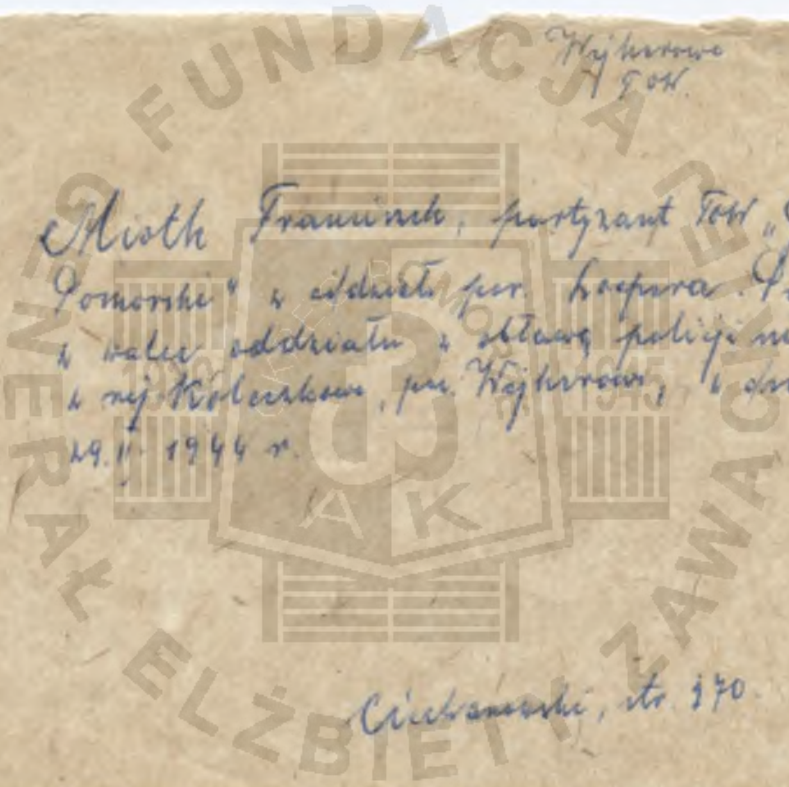 Wejherowo
TOW.
Mioth Franciszek, partyzant TOW „G
Pomorski" z oddziału por. Kacpra.
w walce oddziału z obławą policji
w rej. Koleczkowo, pow. Wejherowo, w dn
29.II 1944 r.
Ciechanowski, str. 370.
FUNDACJA GENERAŁ ELŻBIETY ZAWACKIEJ
OKRĘG POMORZE
1939 1945
AK